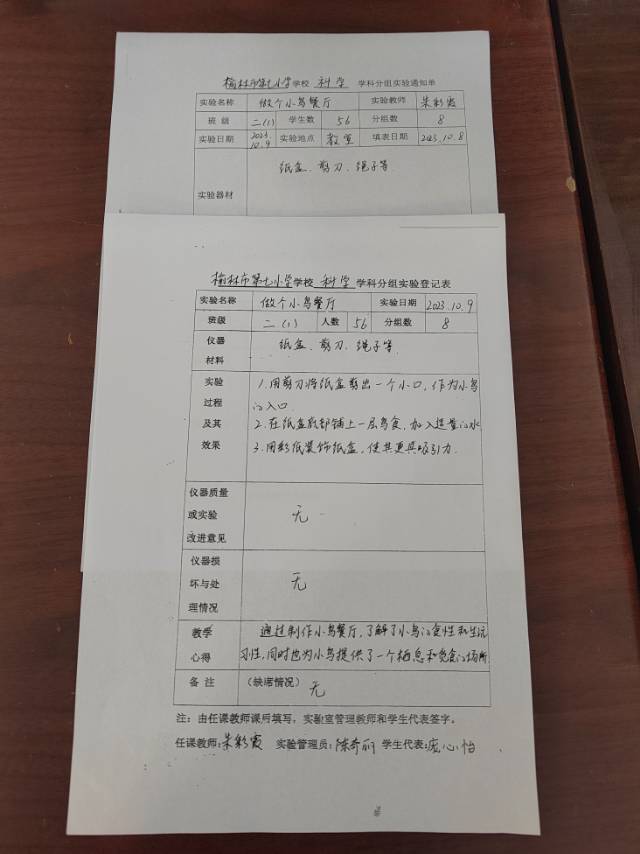 榆林市第七小学学校 科学 学科分组实验通知单
实验名称 做个小鸟餐厅 实验教师 朱彩霞
班 级 二(1) 学生数 56 分组数 8
实验日期 2023.10.9 实验地点 教室 填表日期 2023.10.8
实验器材 纸盒、剪刀、绳子等
榆林市第七小学学校 科学 学科分组实验登记表
实验名称 做个小鸟餐厅 实验日期 2023.10.9
班级 二(1) 人数 56 分组数 8
仪器 纸盒、剪刀、绳子等
材料
实验 1.用剪刀将纸盒剪出一个小口,作为小鸟
过程 的入口.
及其 2.在纸盒底部铺上一层鸟食,加入适量的水
效果 3.用彩纸装饰纸盒,使其更具吸引力.
仪器质量
或实验 无
改进意见
仪器损
坏与处 无
理情况
教学 通过制作小鸟餐厅,了解了小鸟的食性和生活
心得 习性,同时也为小鸟提供了一个栖息和觅食的场所.
备 注 (缺席情况) 无
注:由任课教师课后填写,实验室管理教师和学生代表签字。
任课教师:朱彩霞 实验管理员:陈奇丽 学生代表:庞心怡